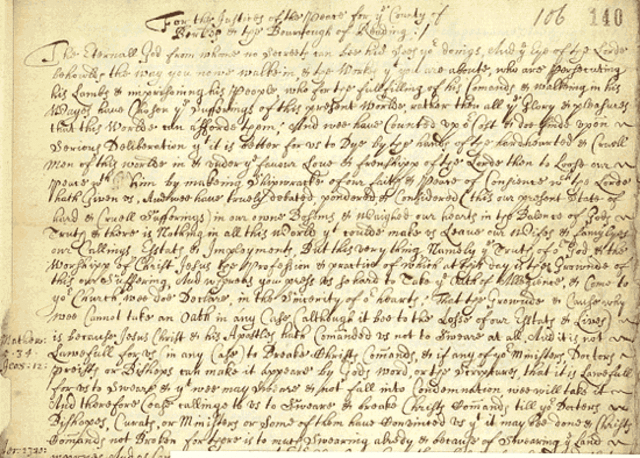 For the Justices of the Peace for ye County of
Berks & the Bourrough of Reading. /
106 140
The Eternall God from whome no Secrets can bee hid sees yor doings, And ye Eye of the Lorde
beholdeth the way you now walke in & the Worke yt you are aboute, who are Persecuting
his Lambs & imprisoning his People who for the fullfilling of his Comands & walking in his
Wayes have Chosen ye Sufferings of this present Worlde rather then all ye Glory & pleasures
that this Worlde can afforde them, And wee have Counted ye Cost & doe finde upon
Serious Deliberation yt it is better for us to Dye by the hands of the hardhearted & Cruell
Men of this worlde in & under ye favour Love & frendshipp of the Lorde then to Loose our
Peace wth him by makeing Shipwracke of our faith & Peace of Consience wch the Lorde
hath Given us, And wee have truely debated, pondered & Considered (this our present State of
hard & Cruell Sufferings) in our owne Bosoms & Waighed our hearts in the Balance of Gods
Truth & there is Nothing in all this World yt coulde make us Leave our Wives & Familyes
our Callings Estats & Imployments, But this very thing Namely ye Truth of or God & the
Worshipp of Christ Jesus the Profession & practice of which at this day is the Grounde of
this our Suffering, And whereas you press us so hard to Take ye Oath of Allegience, & Come to
yor Church, wee doe Declare, in the Sincerity of or hearts, That the Grounde & Cause why
wee Cannot take an Oath in any Case (although it bee to the Losse of our Estats & Lives)
is because Jesus Christ & his Apostles hath Comanded us not to Sweare at all, And it is not
Mathew:
5:34
Jeams:5:12:
Lawefull for us (in any Case) to Breake Christs Comands, & if any of yor Ministers Doctors
Preists or Bishops can make it appeare by Gods word, or the Scriptures that it is Lawefull
for us to Sweare & yt wee may Sweare & not fall into Condemnation wee will take it
And therefore Cease callinge to us to Sweare & breake Christs Comands till yor Doctors
Bishopes, Curats, or Ministers or Some of them have Convinced us yt it may bee done & Christs
Comands not Broken for there is to much Swearing already & because of Swearing ye Land